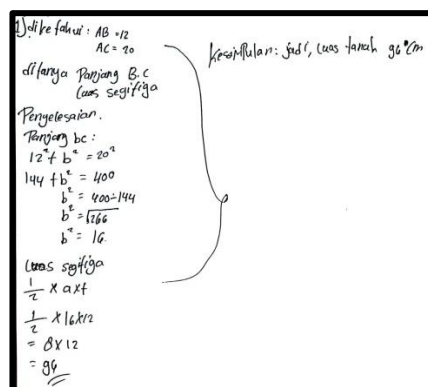 1) diketahui: AB = 12
AC = 20
ditanya Panjang B.C
Luas segitiga
Penyelesaian.
Panjang bc:
12² + b² = 20²
144 + b² = 400
b² = 400 - 144
b² = √266
b² = 16
Luas segitiga
1/2 x a x t
1/2 x 16 x 12
= 8 x 12
= 96
Kesimpulan: jadi, Luas tanah 96 cm